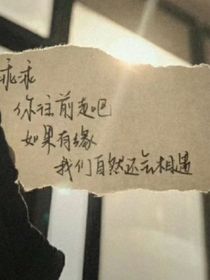 乖乖
你往前走吧
如果有缘
我们自然还会相遇